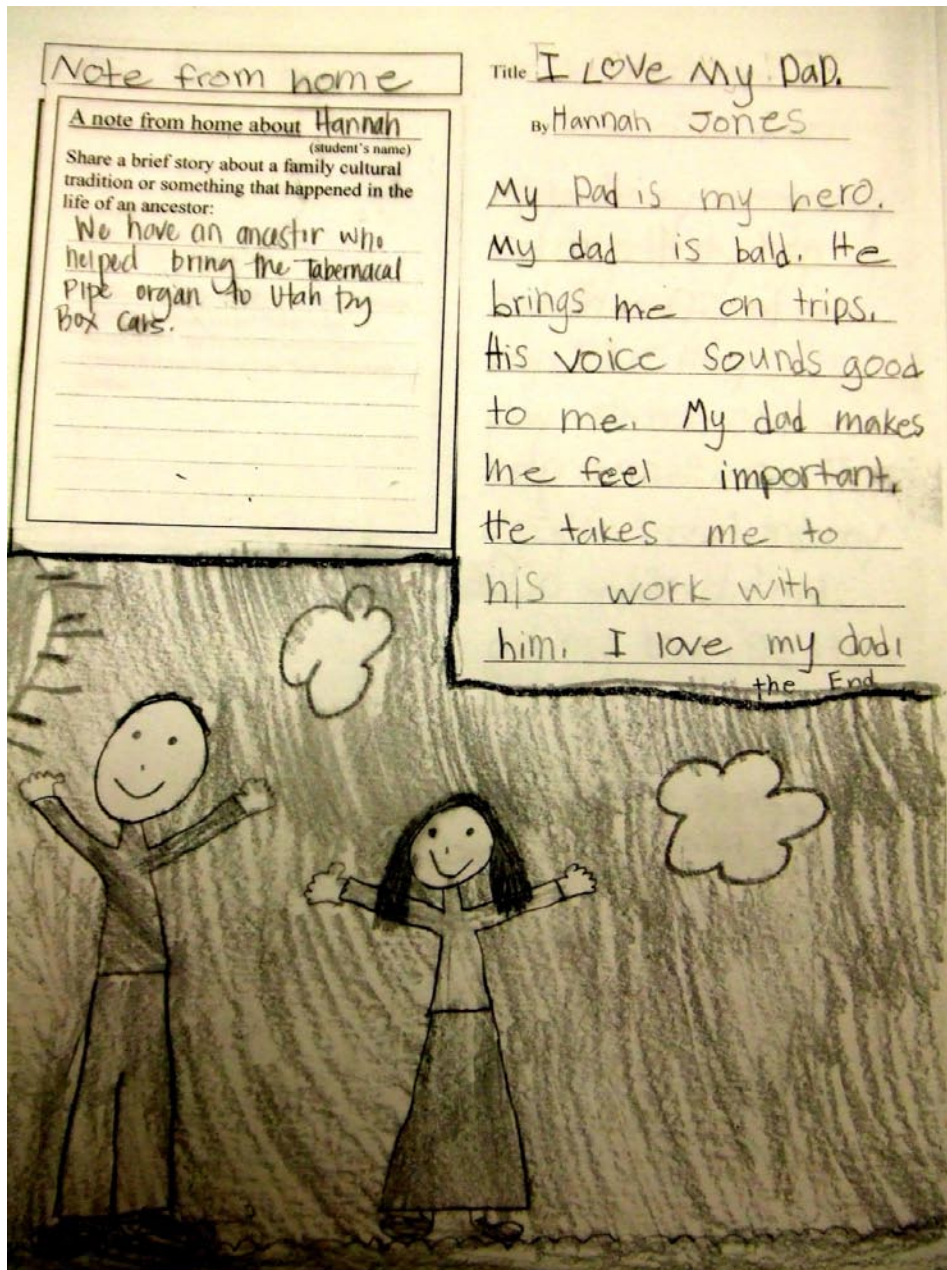 Note from home
A note from home about Hannah
(student's name)
Share a brief story about a family cultural
tradition or something that happened in the
life of an ancestor:
We have an ancestor who
helped bring the Tabernacal
Pipe organ to Utah by
Box cars.
Title I Love My DaD.
By Hannah Jones
My Dad is my hero.
My dad is bald. He
brings me on trips.
His voice sounds good
to me. My dad makes
me feel important.
He takes me to
his work with
him. I love my dad!
the End